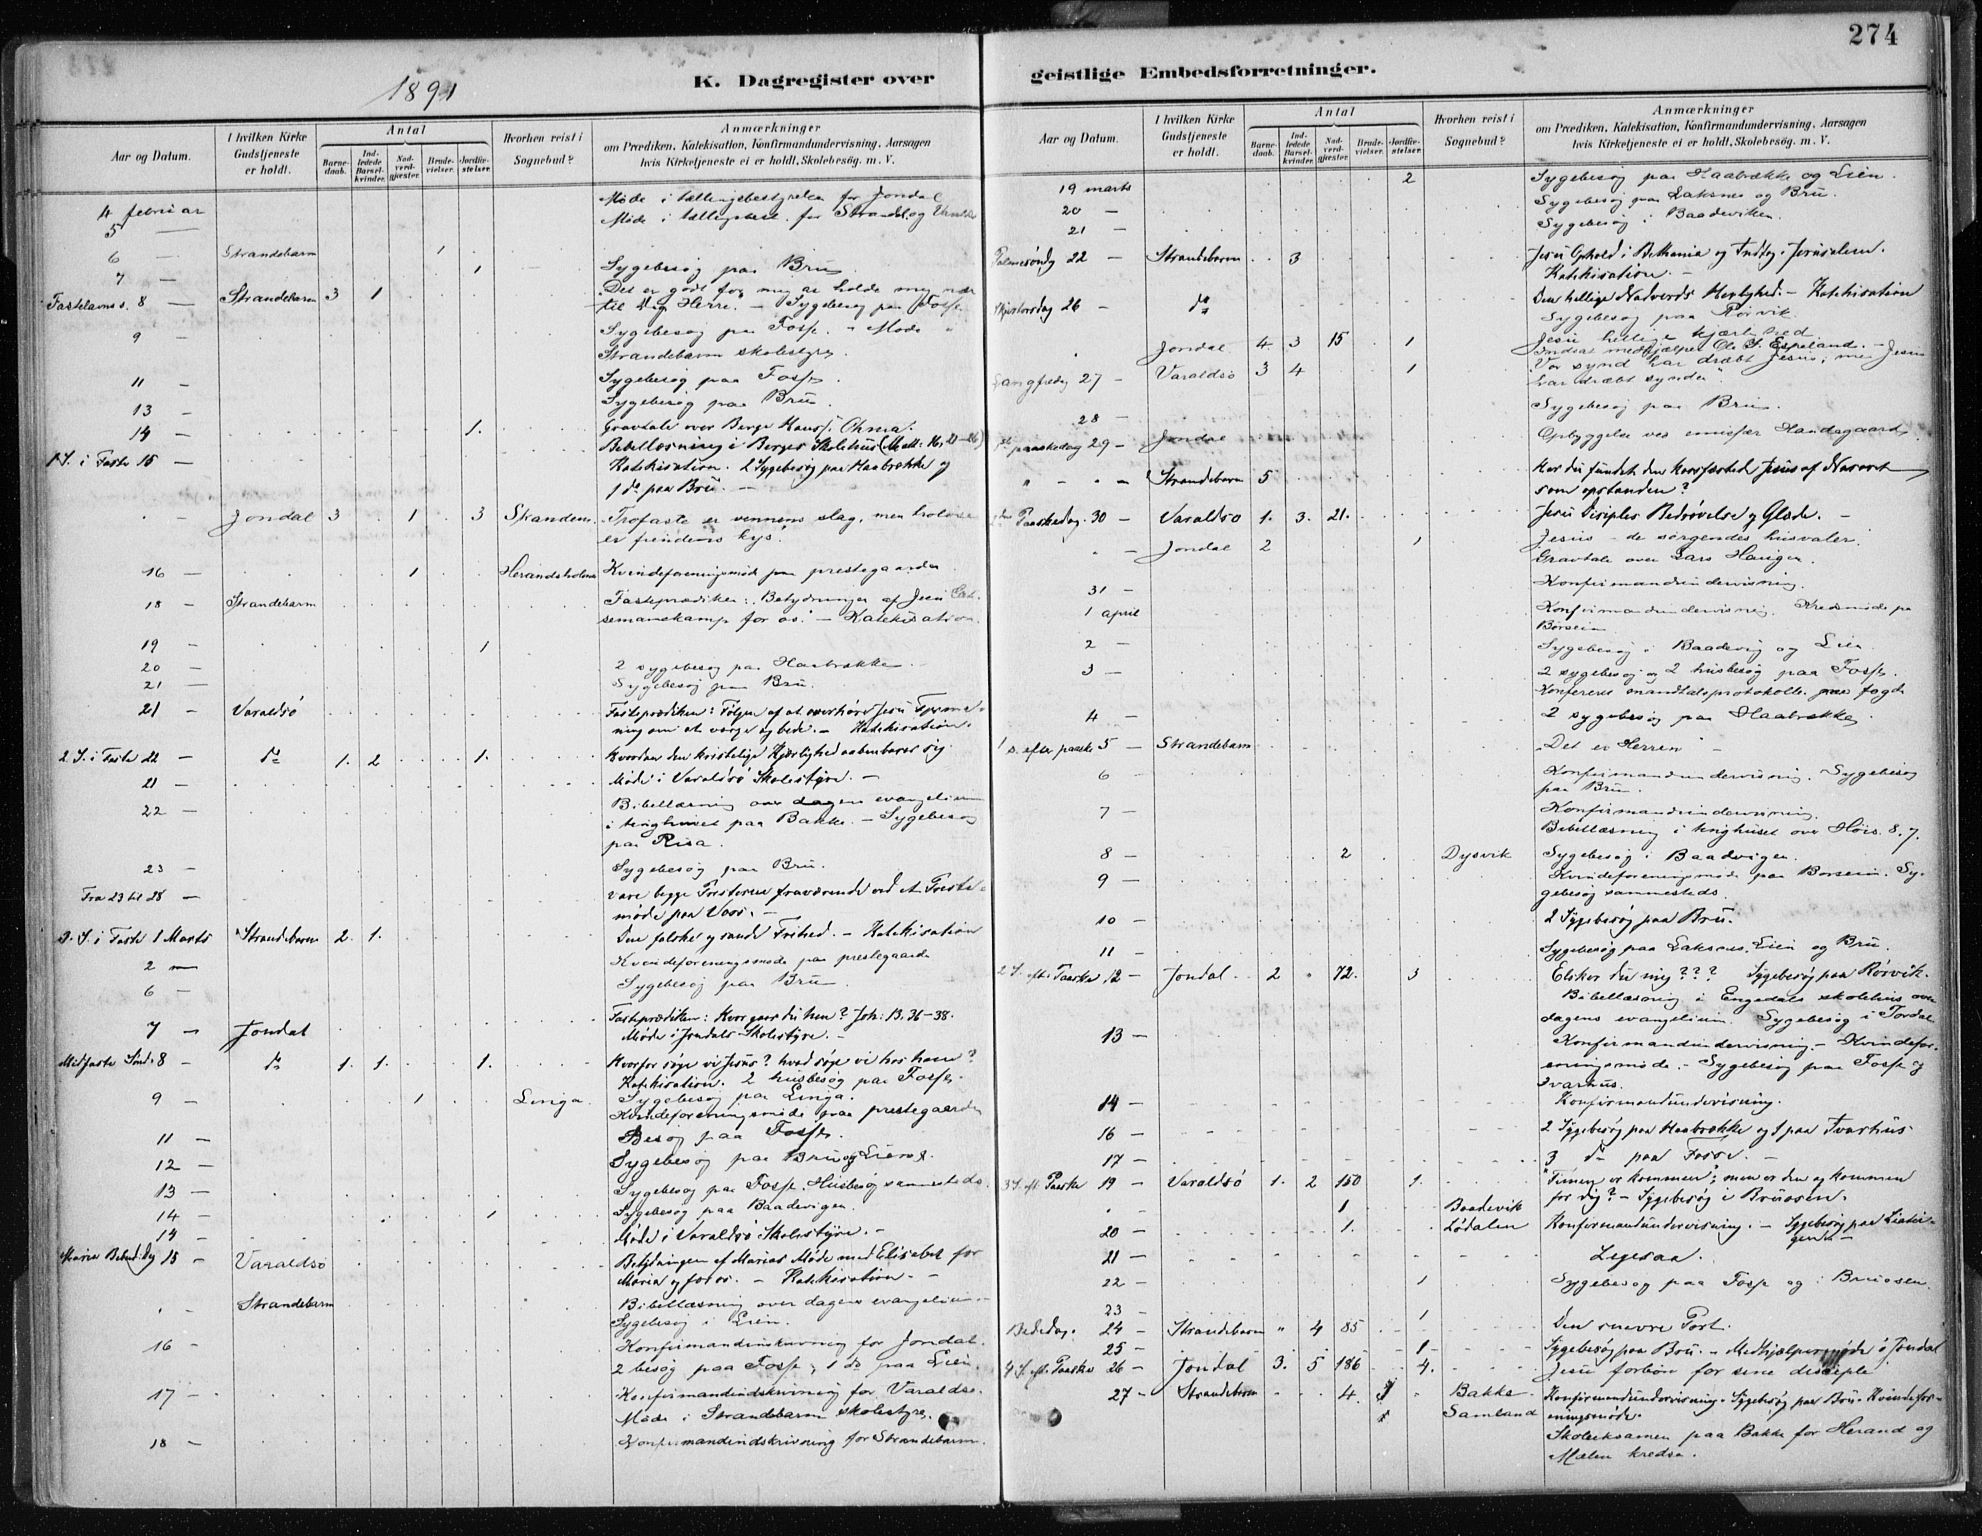 274
1891
K. Dagregister over
geistlige Embedsforretninger.
Aar og Datum.
I hvilken Kirke Gudstjeneste er holdt.
Antal
Barne-daab.
Ind-ledede Barsel-kvinder.
Nad-verd-gjester.
Brude-vielser.
Jordfæ-stelser.
Hvorhen reist i Sognebud?
Anmærkninger
om Prædiken, Katekisation, Konfirmandundervisning, Aarsagen
hvis Kirketjeneste ei er holdt, Skolebesög. m. V.
4 februar Møde i tællingsbestyrelsen for Jondal
5 — Møde i tællingsbest. for Strandeb. og
6 — Strandebarm 1
7 — 1 Sygebesøg paa Bru
Fastelavns s. 8 — Strandebarm 3 1 "Det er godt for mig at holde mig nær
til Dig Herre. — Sygebesøg paa Fosse.
9 — Sygebesøg paa Fosse. — Møde i
Strandebarm skolestyre.
11 — Sygebesøg paa Fosse.
13 — Sygebesøg paa Bru.
14 — 1. Gravtale over Børge Hanss.
1 S. i Faste 15 — Bibellæsning i Berges Skolehus (Matt: 16, 21-26)
Katekisation. 2 Sygebesøg paa Haabrække og
1 do paa Bru. —
" — Jondal 3 1 3 Skanden. Trofaste er vennens slag, men
er fiendens kys.
16 — 1 Herandsholmen Kvindeforeningsmøde paa prestegaarden
18 — Strandebarm Fasteprædiken: Betydningen af Jesu Get-
semanekamp for os. — Katekisation.
19 — 1
20 — 2 sygebesøg paa Haabrække.
21 — Sygebesøg paa Bru.
21 — Varaldsø Fasteprædiken: Følgen af at overhøre Jesu
ning om at vaage og bede. — Katekisation.
2. S. i Faste 22 — do 1. 2 1. Hvordan den kristelige Kjærlighed aabenbarer sig.
21 — Møde i Varaldsø Skolestyre. —
22 — Bibellæsning over dagens evangelium
i tinghuset paa Bakke. — Sygebesøg
paa Risa.
23 — Sygebesøg paa Bru.
Fra 23 til 28 — vare begge Presterne fraværende ved et Preste-
møde paa Voss. —
3. S. i Faste 1 Marts Strandebarm 2. 1. Den falske og sande Frihed. — Katekisation
2 — Kvindeforeningsmøde paa prestegaarden
6 — Sygebesøg paa Bru
7 — Jondal Fasteprædiken: Hvor gaar du hen? Joh: 13. 36-38.
Møde i Jondals Skolestyre. —
Midfaste Sønd. 8 — do 1. 1. 1. Hvorfor søge vi Jesus? hvad søge vi hos ham?
Katekisation. 2 husbesøg paa Fosse.
9 — 1 Linga. Sygebesøg paa Linga.
Kvindeforeningsmøde paa prestegaarden
11 — Besøg paa Fosse.
12 — Sygebesøg paa Bru og Lien.
13 — Sygebesøg paa Fosse. Husbesøg sammesteds.
14 — 1 Sygebesøg paa Baadevigen.
14 — Møde i Varaldsø Skolestyre. —
Mariæ Bebud. Dag 15 — Varaldsø Betydningen af Marias Møde med Elisabet for
Maria og for os. — Katekisation. —
" Strandebarm Bibellæsning over dagens evangelium —
Sygebesøg i Lien.
16 — Konfirmandindskrivning for Jondal.
2 besøg paa Fosse, 1 do paa Lien.
17 — Konfirmandindskrivning for Varaldsø.
Møde i Strandebarm skolestyre.
18 — Konfirmandindskrivning for Strandebarm.
Aar og Datum.
I hvilken Kirke Gudstjeneste er holdt.
Antal
Barne-daab.
Ind-ledede Barsel-kvinder.
Nad-verd-gjester.
Brude-vielser.
Jordfæ-stelser.
Hvorhen reist i Sognebud?
Anmærkninger
om Prædiken, Katekisation, Konfirmandundervisning, Aarsagen
hvis Kirketjeneste ei er holdt, Skolebesög. m. V.
19 marts 2 Sygebesøg paa Haabrække og Lien.
20 — Sygebesøg paa Laksnes og Bru.
21 — Sygebesøg i Baadeviken.
Palmesøndg 22 — Strandebarm 3 Jesu Ophold i Bethania og Indtog i Jerusalem.
Katekisation. —
Skjærtorsdag 26 — do Den hellige Nadverds Herlighed. — Katekisation
Sygebesøg paa Rørvik.
" Jondal 4 3 15 1 Jesu hellige kjærlighed.
Indsat medhjælper Ole S. Espeland. —
Langfredg 27 — Varaldsø 3 4 1 "Vor synd har dræbt Jesus; men Jesus
har dræbt synden".
28 — Sygebesøg paa Bru.
1ste paaskedag 29 — Jondal Opbyggelse ved emissær Handegaard
" — " — Strandebarm 5 Har du fundet den korsfæsted Jesus af Nazaret
som opstanden?
2den Paaskedag. 30 — Varaldsø 1. 3. 21. Jesu Disiples Bedrøvelse og Glæde. —
" — Jondal 2 1 Jesus — de sørgendes husvaler.
Gravtale over Lars Haugen
31 — Konfirmandundervisning.
1 april Konfirmandundervisning. Kredsmøde paa
Børsein
2 — Sygebesøg i Baadevig og Lien.
3 — 2 sygebesøg og 2 husbesøg paa Fosse.
Konfereret mandtalsprotokoller paa fogde
4 — 2 sygebesøg paa Haabrække
1 s. efter paaske 5 — Strandebarm "Det er Herren" —
6 — Konfirmandundervisning. Sygebesøg
paa Bru.
7 — Konfirmandundervisning.
Bibellæsning i tinghuset over Høis. 8, 7.
8 — 2 Dysvik Sygebesøg i Baadvigen.
9 — Kvindeforeningsmøde paa Børsein. Sy-
gebesøg sammesteds.
10 — 2 Sygebesøg paa Bru.
11 — Sygebesøg paa Laksnes, Lien og Bru.
2 S. eft. Paaske 12 — Jondal 2 " 72. 3 Elsker du mig??? Sygebesøg paa Rørvik.
Bibellæsning i Engedals skolehus over
dagens evangelium. Sygebesøg i Jondal
13 — Konfirmandundervisning. — Kvindefor-
eningsmøde. — Sygebesøg paa Fosse og
Tvarhus.
14 — Konfirmandundervisning.
16 — 2 Sygebesøg paa Haabrække og 1 paa Tvarhus
17 — 3 do paa Fosse. —
3 S. eft. Paaske 19 — Varaldsø 1. 2 150 1. "Timen er kommen"; men er den og kommen
for dig? — Sygebesøg i Bruosen.
" 1 Baadevik
20 — 1. Lødalen Konfirmandundervisning. — Sygebesøg paa
21 —
22 — 1 Sygebesøg paa Fosse og i Bruosen
23 — 1
Bededag. 24 — Strandebarm " 4 85 Den snevre Port.
25 — 1 Sygebesøg paa Bru. — Medhjælpermøde i Jondal
4 S. eft. Paaske 26 — Jondal 3. 5 186 4. Jesu forbøn for sine disciple
27 — Strandebarm 4 Bakke Konfirmandundervisning. Sygebesøg paa Bru. Kvindefor-
Samland eningsmøde.
Skoleeksamen paa Bakke for Herand og
Mælen kredse.